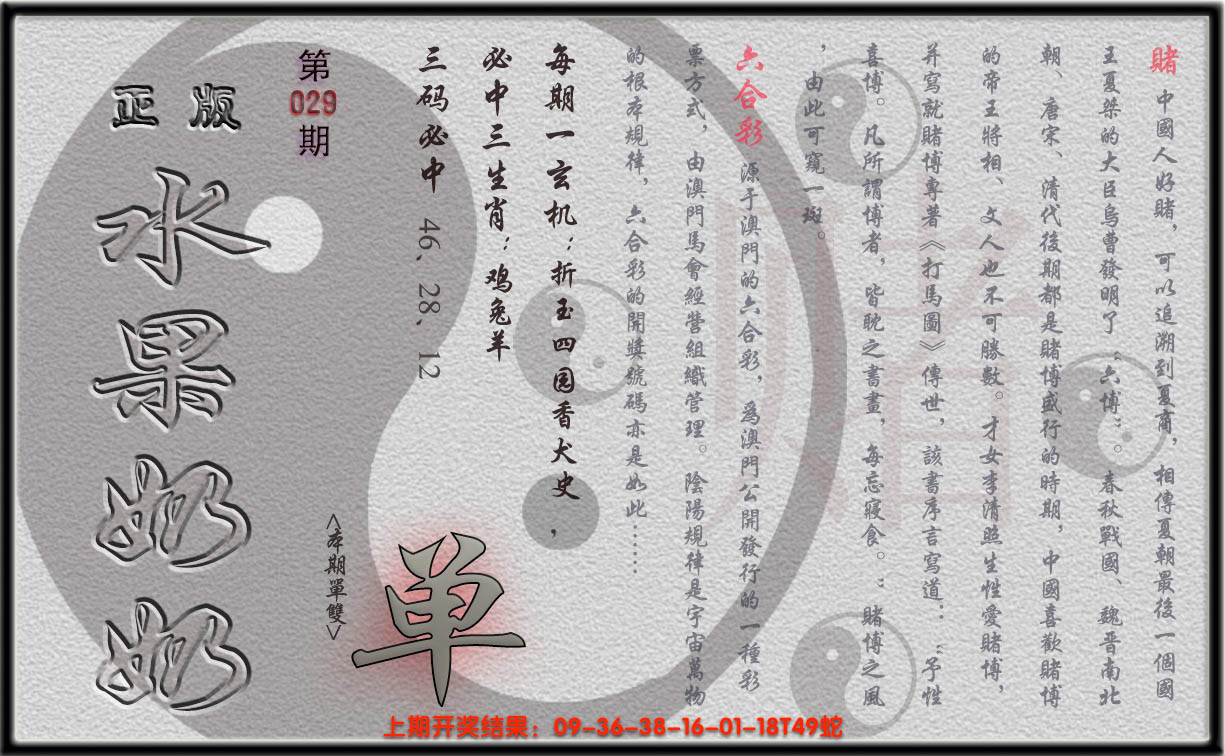 賭 中國人好賭，可以追溯到夏商，相傳夏朝最後一個國
王夏桀的大臣烏曹發明了“六博”。春秋戰國、魏晋南北
朝、唐宋、清代後期都是賭博盛行的時期，中國喜歡賭博
的帝王將相、文人也不可勝數。才女李清照生性愛賭博，
并寫就賭博專著《打馬圖》傳世，該書序言寫道：“予性
喜博。凡所謂博者，皆耽之書畫，每忘寢食。”賭博之風
，由此可窺一斑。
六合彩 源于澳門的六合彩，爲澳門公開發行的一種彩
票方式，由澳門馬會經營組織管理。陰陽規律是宇宙萬物
的根本規律，六合彩的開獎號碼亦是如此……
每期一玄机：折玉四园香犬史，
必中三生肖：鸡兔羊
三码必中 46、28、12
第
029
期
<本期單雙>
单
正版
水果奶奶
赌
上期开奖结果：09-36-38-16-01-18T49蛇